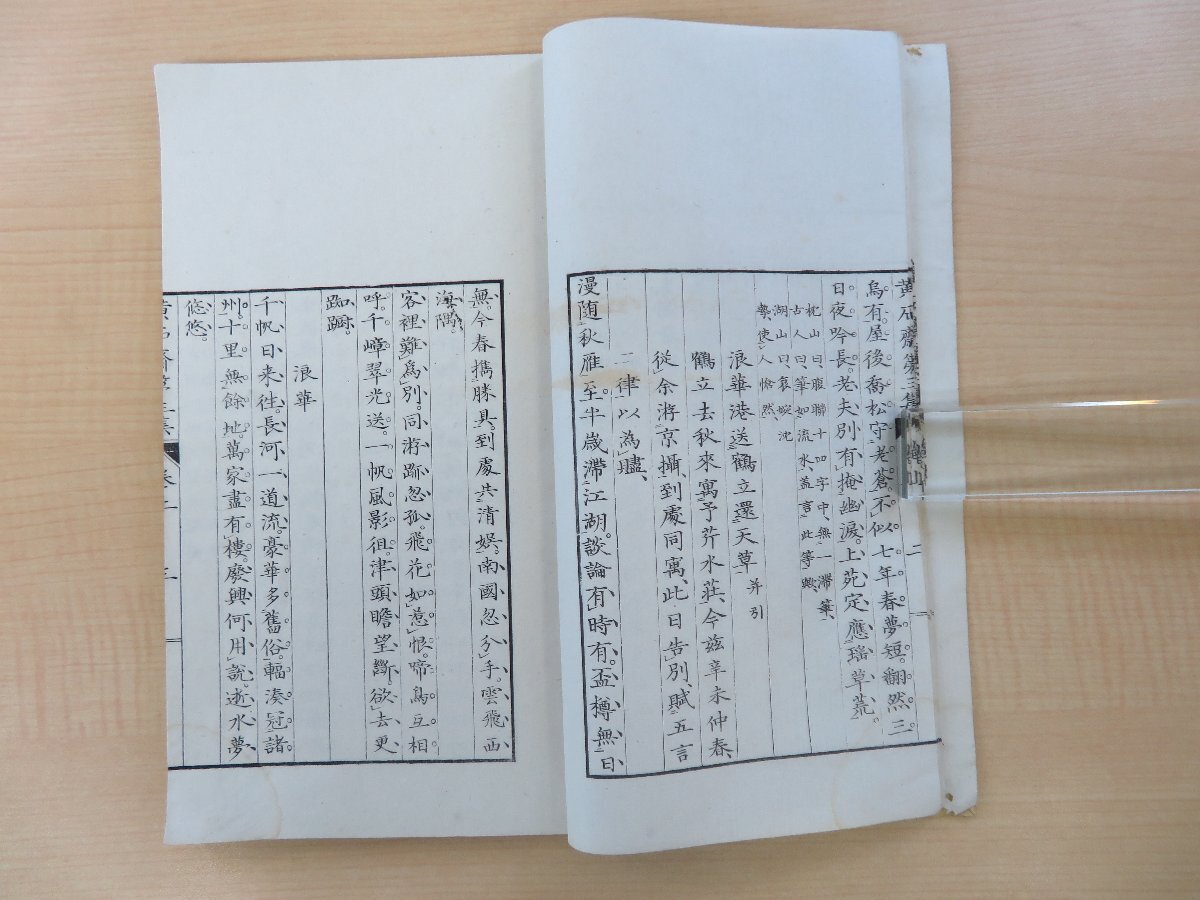 黄石齋第三集
二
烏有屋後喬松守老蒼不似七年春夢短翻然三
日夜吟長老夫別有掩幽淚上苑定應瑤草荒
枕山曰腹聯十四字中無一滯筆
古人曰筆如流水蓋言此等歟
湖山曰哀婉沈
勢使人愴然
浪華港送鶴立還天草 并引
鶴立去秋來寓予芹水莊今茲辛未仲春
從余游京攝到處同寓此日告別賦五言
二律以為贐
漫随秋雁至半歳滯江湖談論有時有盃樽無日
無今春携勝具到處共清娯南國忽分手雲飛西
海隅
客裡難為別同游跡忽孤飛花如惹恨啼鳥互相
呼千嶂翠光送一帆風影徂津頭瞻望斷欲去更
踟蹰
浪華
千帆日来往長河一道流豪華多舊俗輻湊冠諸
州十里無餘地萬家盡有樓廢興何用說逝水夢
悠悠